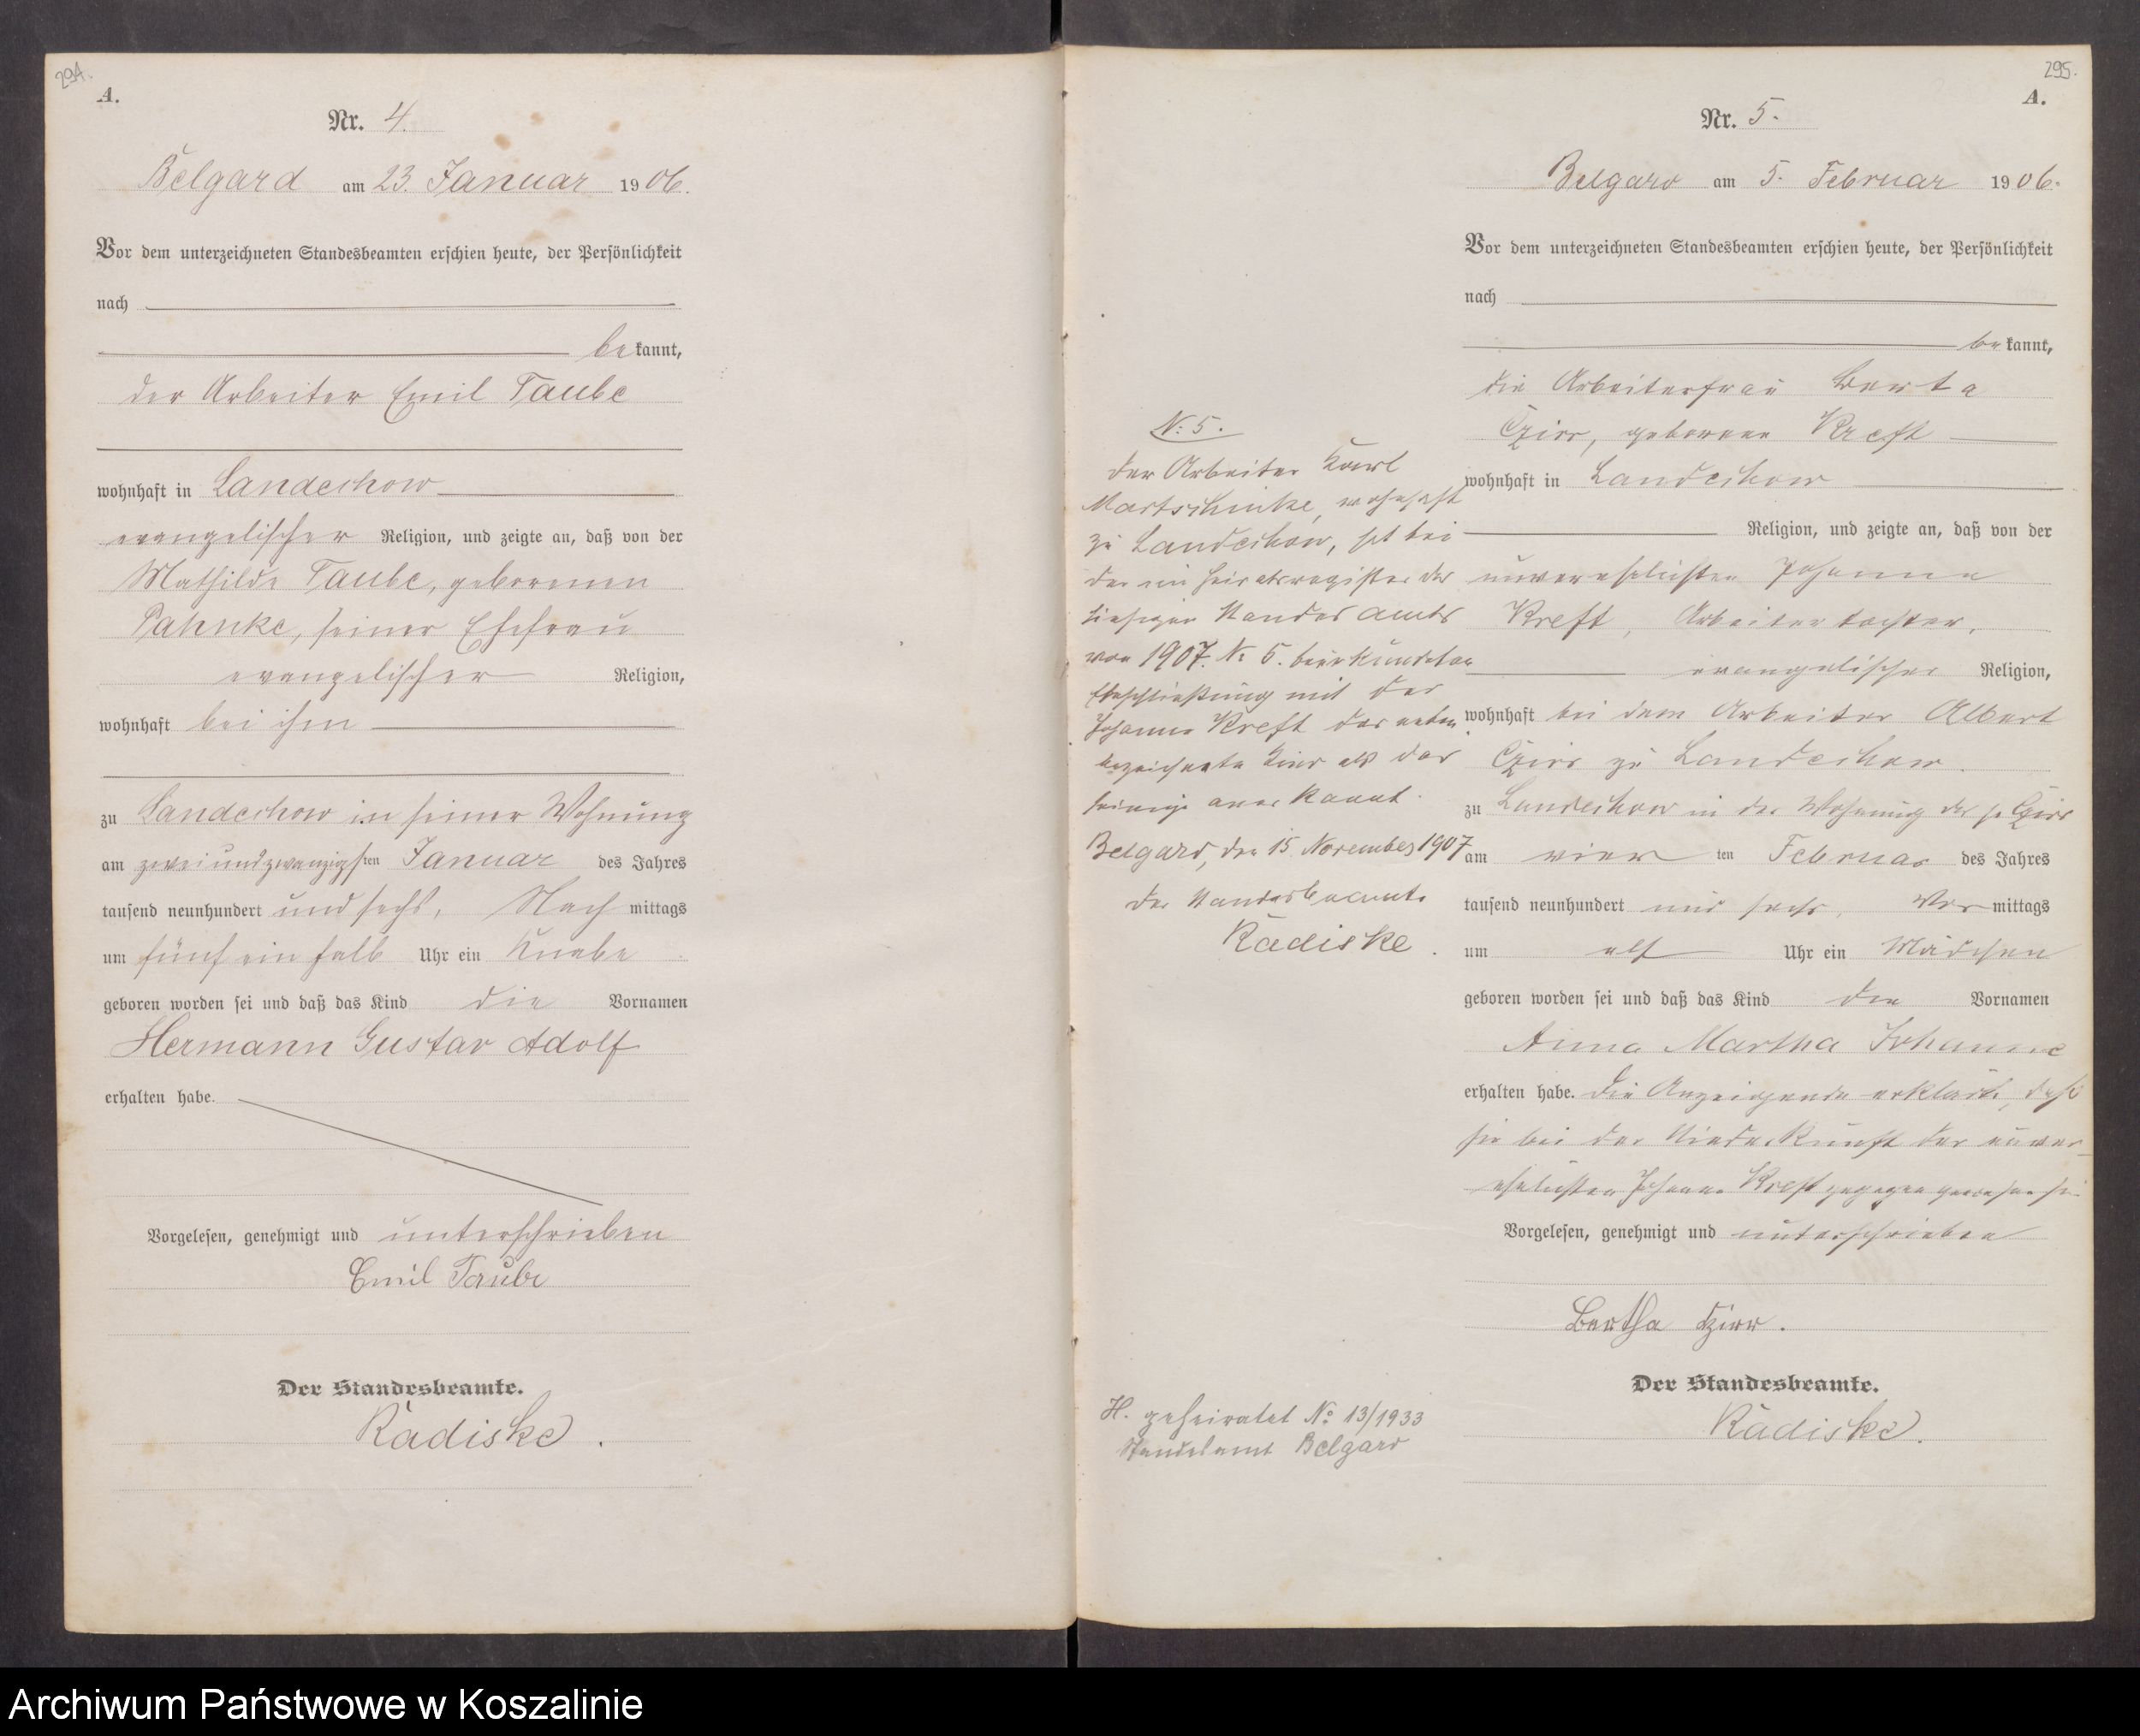 294.
A.
Nr. 4.
Belgard am 23. Januar 1906.
Vor dem unterzeichneten Standesbeamten erschien heute, der Persönlichkeit
nach
bekannt,
der Arbeiter Emil Taube
wohnhaft in Landechow
evangelischer Religion, und zeigte an, daß von der
Mathilde Taube, geborenen
Pahnke, seiner Ehefrau
evangelischer Religion,
wohnhaft bei ihm
zu Landechow in seiner Wohnung
am zweiundzwanzigsten Januar des Jahres
tausend neunhundert und sechs, Nachmittags
um fünf ein halb Uhr ein Knabe
geboren worden sei und daß das Kind die Vornamen
Hermann Gustav Adolf
erhalten habe.
Vorgelesen, genehmigt und unterschrieben
Emil Taube
Der Standesbeamte.
Radiske.
295.
A.
Nr. 5.
Belgard am 5. Februar 1906.
Vor dem unterzeichneten Standesbeamten erschien heute, der Persönlichkeit
nach
bekannt,
die Arbeiterfrau Berta
Czirr, geborene Kreft
wohnhaft in Landechow
Religion, und zeigte an, daß von der
unverehelichten Johanna
Kreft, Arbeitertochter,
evangelischer Religion,
wohnhaft bei dem Arbeiter Albert
Czirr zu Landechow.
zu Landechow in der Wohnung der Czirr
am vierten Februar des Jahres
tausend neunhundert und sechs, Vormittags
um elf Uhr ein Mädchen
geboren worden sei und daß das Kind die Vornamen
Anna Martha Johanne
erhalten habe. Die Anzeigende erklärte, daß
sie bei der Niederkunft der unver-
ehelichten Johanna Kreft zugegen gewesen sei
Vorgelesen, genehmigt und unterschrieben
Bertha Czirr.
Der Standesbeamte.
Radiske.
N: 5.
Der Arbeiter Karl
Martschinke, wohnhaft
zu Landechow, hat bei
der im Heiratsregister des
hiesigen Standesamts
von 1907. No 5. beurkundeten
Eheschließung mit der
Johanna Kreft das neben
bezeichnete Kind als das
seinige anerkannt.
Belgard, den 15. November 1907
Der Standesbeamte
Radiske.
H. geheiratet No 13/1933
Standesamt Belgard
Archiwum Państwowe w Koszalinie